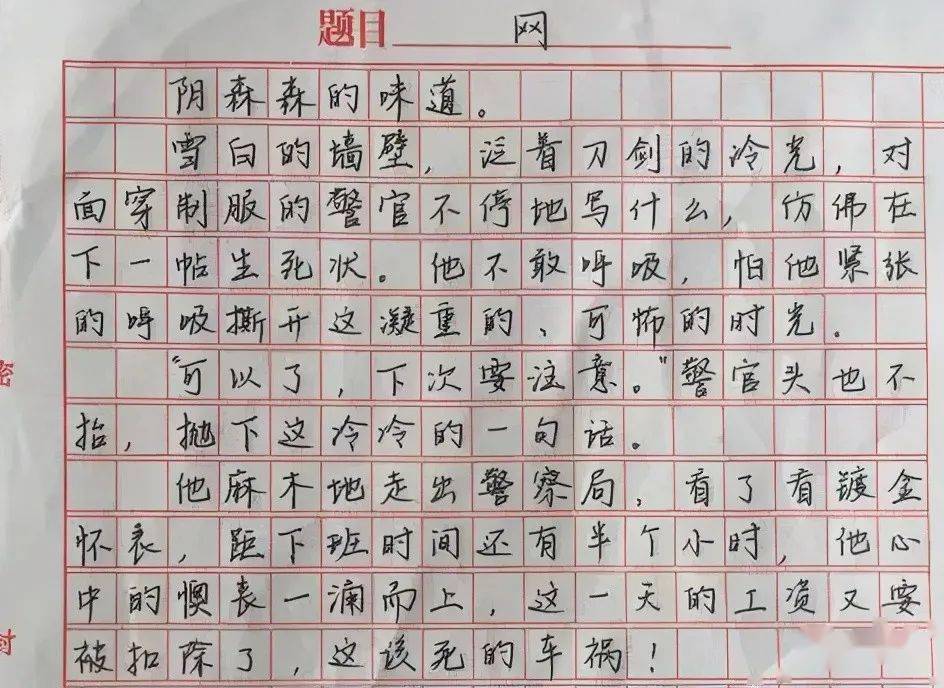 题目 网
阴森森的味道。
雪白的墙壁，泛着刀剑的冷光，对
面穿制服的警官不停地写什么，仿佛在
下一帖生死状。他不敢呼吸，怕他紧张
的呼吸撕开这凝重的、可怖的时光．
“可以了，下次要注意。”警官头也不
抬，抛下这冷冷的一句话。
他麻木地走出警察局，看了看镀金
怀表，距下班时间还有半个小时，他心
中的懊丧一涌而上，这一天的工资又要
被扣除了，这该死的车祸！
密
封